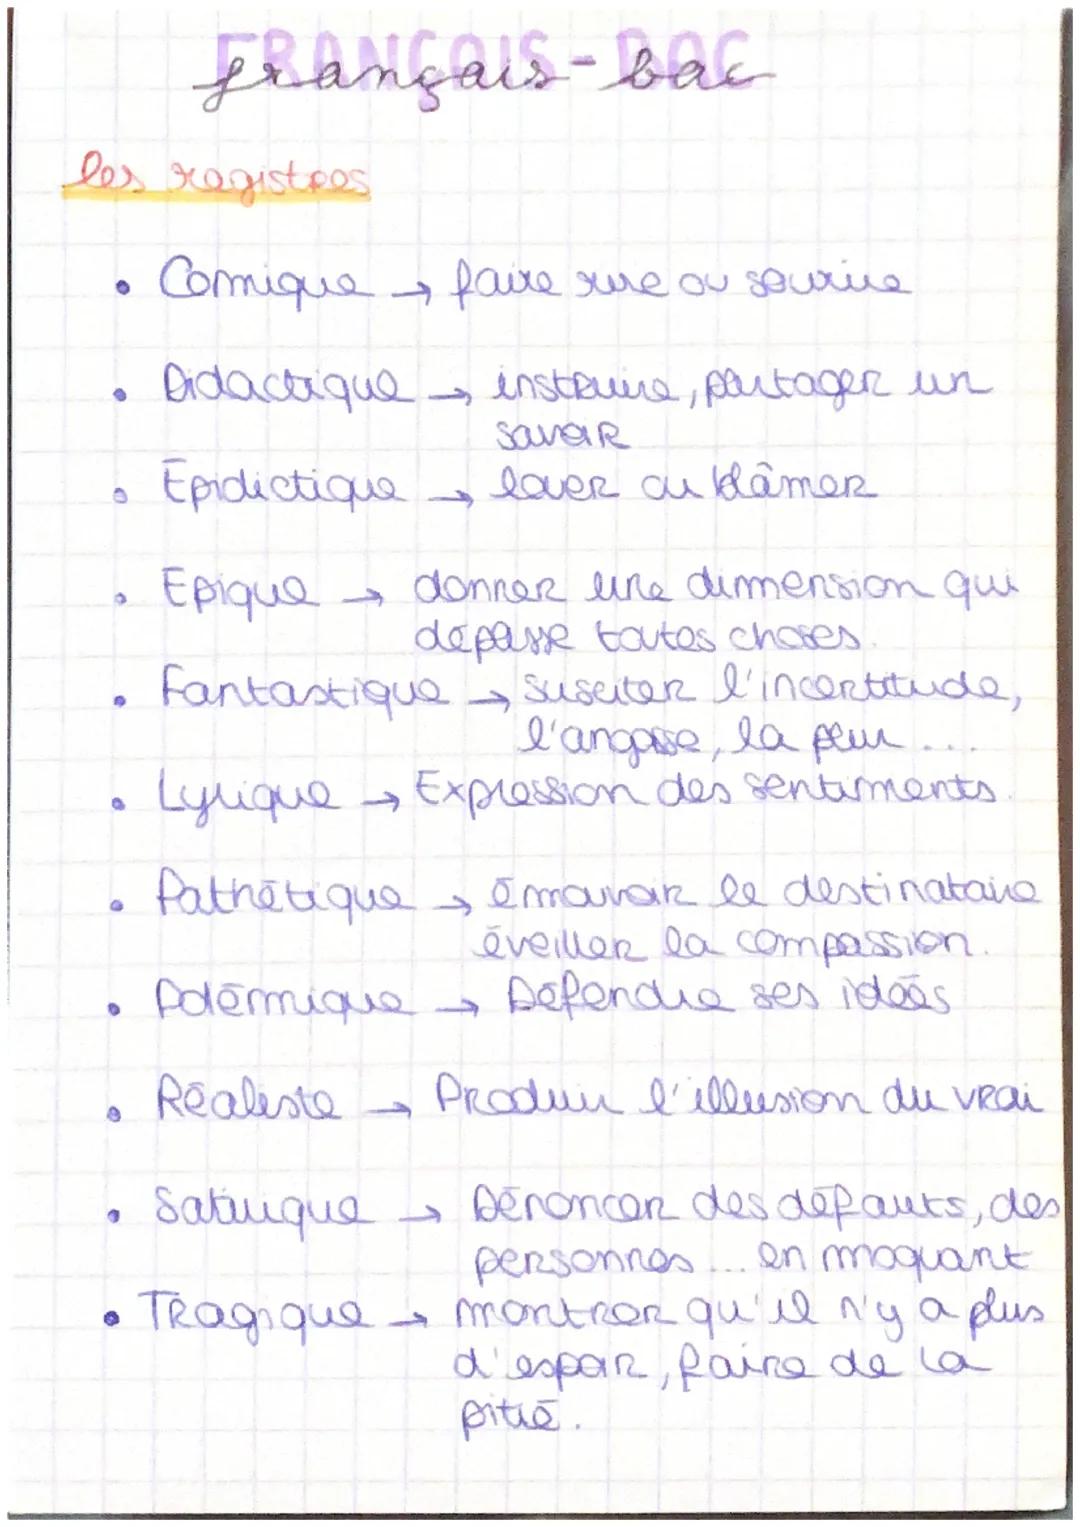 FRANÇAIS-BAC
français-bac
les registres
• Comique → faire rire ou sourire
• Didactique → instruire, partager un
savoir
• Épidictique → louer ou blâmer
• Epique → donner une dimmension qui
dépasse toutes choses.
• Fantastique → susciter l'incertitude,
l'angoisse, la peur ...
• Lyrique → Expression des sentiments.
• Pathétique → émouvoir le destinataire
éveiller la compassion.
• Polémique → Défendre ses idées
• Réaliste → Produire l'illusion du vrai
• Satirique → Dénoncer des défauts, des
personnes ... en moquant
• Tragique → montrer qu'il n'y a plus
d'espoir, faire de la
pitié.